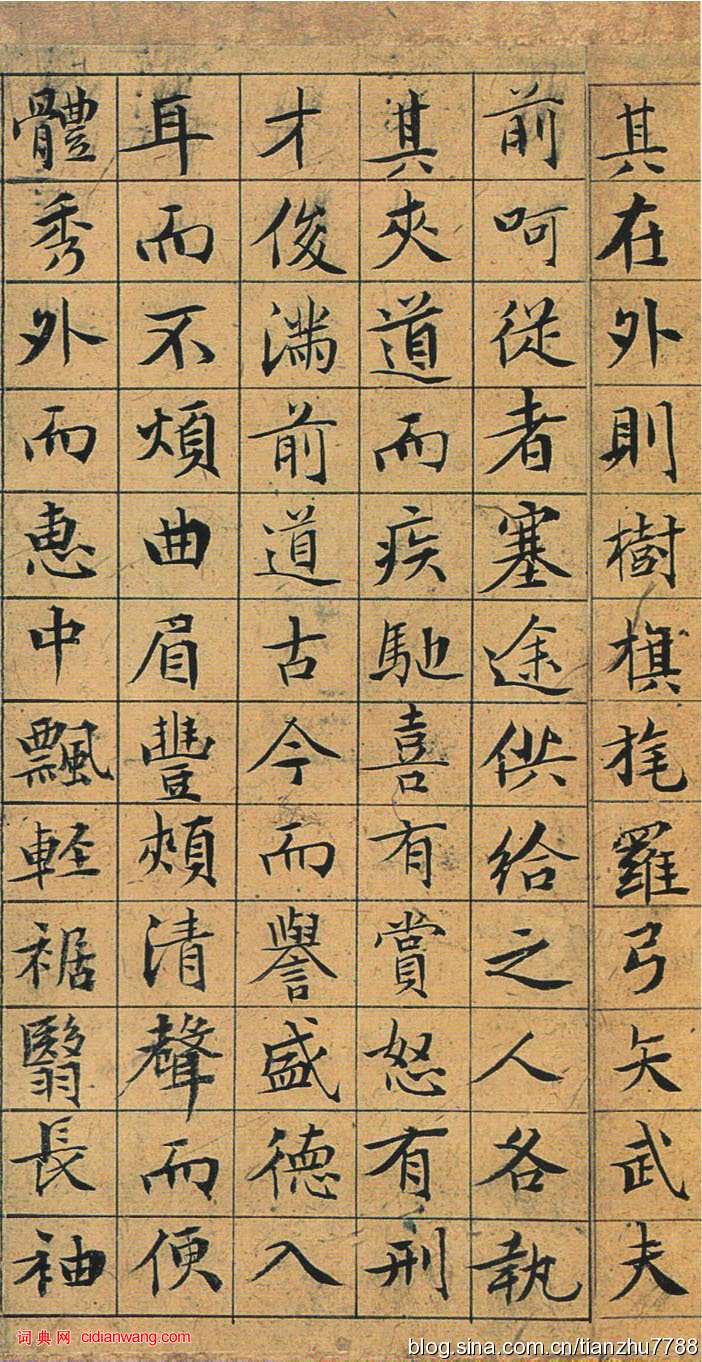 其在外則樹旗旄羅弓矢武夫
前呵從者塞途供給之人各執
其夾道而疾馳喜有賞怒有刑
才俊滿前道古今而譽盛德入
耳而不煩曲眉豐頰清聲而便
體秀外而惠中飄輕裾翳長袖
词典网 cidianwang.com
blog.sina.com.cn/tianzhu7788